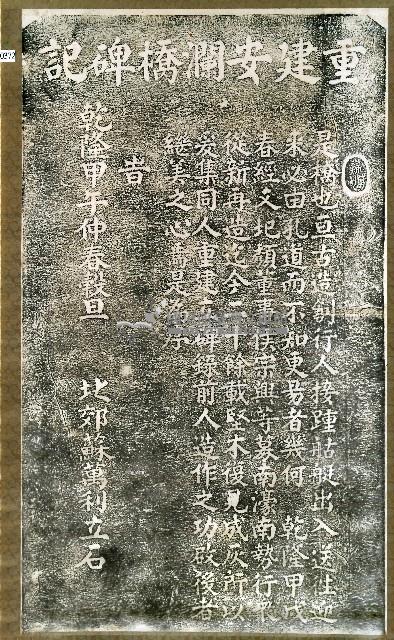 重建安瀾橋碑記
是橋也亘古造創行人接踵舡艇出入送往迎
來必由孔道而不知更易者幾何 乾隆甲戌
春經文圯頹董事侯宗興等募南濠南勢行眾
從新再造迄今二十餘載堅木復見成灰所以
爰集同人重建立碑錄前人造作之功啟後者
繼美之心
旹
乾隆甲午仲春穀旦 北郊蘇萬利立石
0372